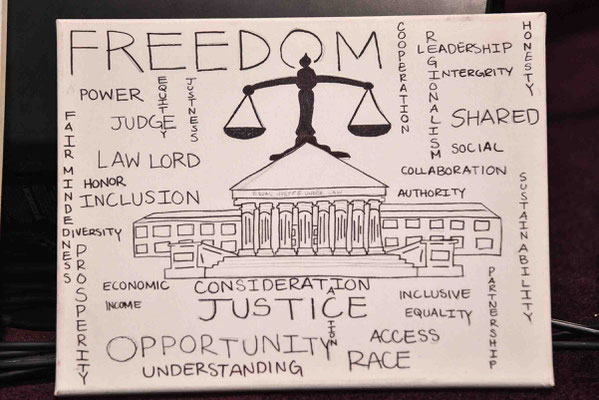 FREEDOM
COOPERATION
REGIONALISM
LEADERSHIP
INTERGRITY
HONESTY
POWER
EQUITEY
JUSTNESS
JUDGE
SHARED
LAW LORD
SOCIAL
COLLABORATION
HONOR
INCLUSION
AUTHORITY
FAIRMINDEDNESS
DIVERSITY
PROSPERITY
SUSTAINABILITY
PARTNERSHIP
ECONOMIC
INCOME
CONSIDERATION
JUSTICE
ACTION
INCLUSIVE
EQUALITY
OPPORTUNITY
ACCESS
RACE
UNDERSTANDING